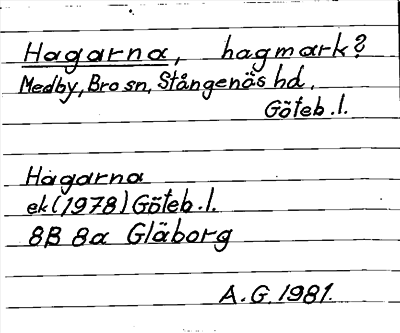 Hagarna, hagmark?
Medby, Bro sn, Stångenäs hd,
Göteb.l.
Hagarna
ek (1978) Göteb.l.
8B 8a Gläborg
A.G. 1981.